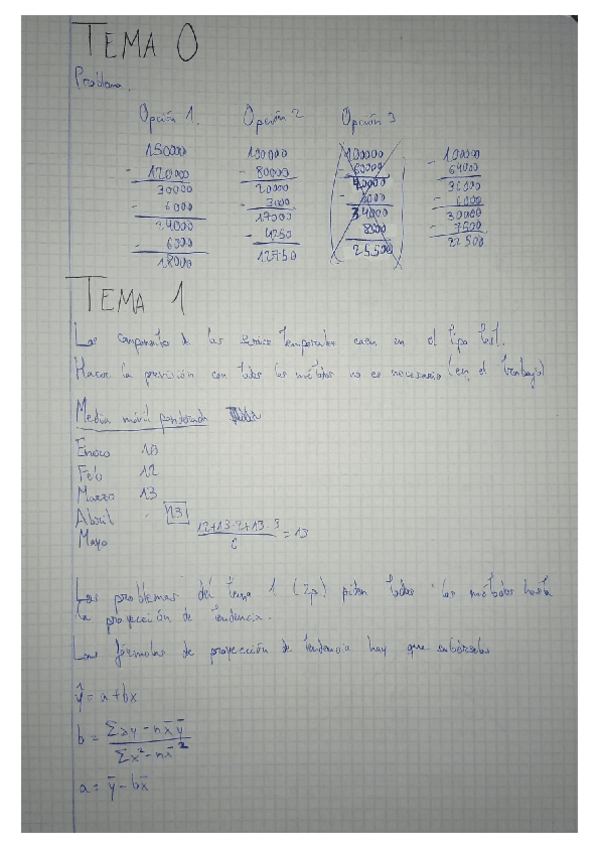 TEMA 0
Problema.
Opción 1. Opción 2 Opción 3
150000 100000 100000 - 100000
- 120000 - 80000 - 60000 64000
30000 20000 40000 36000
- 6000 - 3000 - 6000 - 6000
24000 17000 34000 30000
- 6000 - 4250 8000 - 7500
18000 12750 25500 22500
TEMA 1
Los componentes de las series temporales caen en el tipo test.
Hacer la previsión con todos los métodos no es necesario (en el trabajo)
Media móvil ponderada
Enero 10
Feb 12
Marzo 13
Abril 13
Mayo
12+13·2+13·3 / 6 = 13
Los problemas del tema 1 (2p) piden todos los métodos hasta
la proyección de tendencia.
Las fórmulas de proyección de tendencia hay que sabérselas
ŷ = a + bx
b = Σxy - nx̄ȳ / Σx² - nx̄²
a = ȳ - bx̄